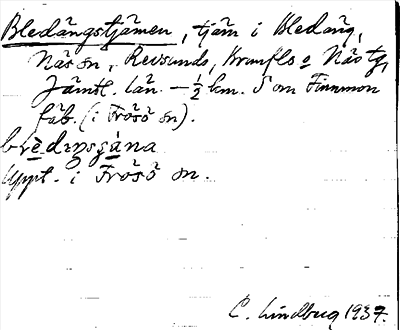 Bledångstjärnen, tjärn i Bledång,
Näs sn, Revsunds, Brunflo o Näs tg,
Jämtl. län. — ½ km. S om Finnmon
fäb. (i Frösö sn).
Uppt. i Frösö sn.
C. Lindberg 1937.